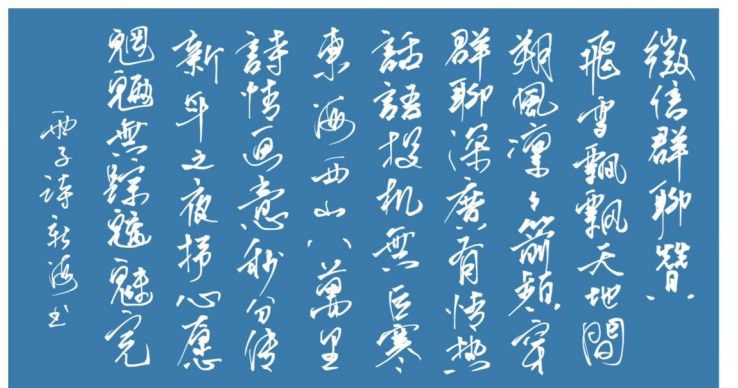 微信群聊贊
飛雪飄飄天地間
朔風凜々箭頻穿
群聊深廣有情热
話語投机無寒
東海西山八萬里
詩情画意秒分传
新年之夜抒心愿
魍魎無踪魑魅完
西子詩新海书